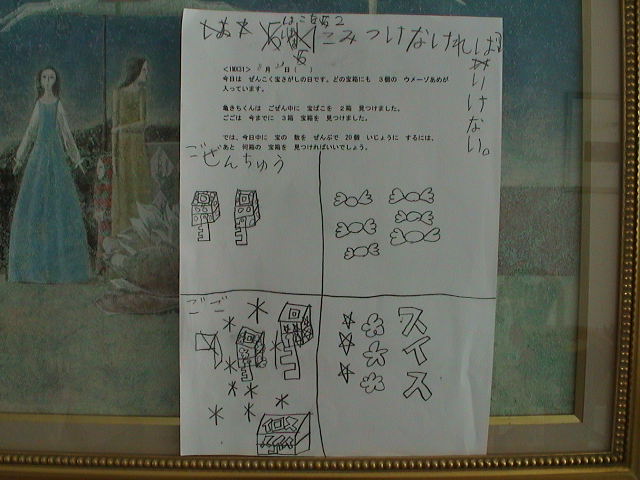 はこを 2
こみつけなければ
いけない。
<IMX31> 月 日 ( )
今日は ぜんこく宝さがしの日です。どの宝箱にも 3個の ウメーゾあめが
入っています。
亀きちくんは ごぜん中に 宝ばこを 2箱 見つけました。
ごごは 今までに 3箱 宝箱を 見つけました。
では、今日中に 宝の 数を ぜんぶで 20個 いじょうに するには、
あと 何箱の 宝箱を 見つければいいでしょう。
ごぜんちゅう
ごご
スイス